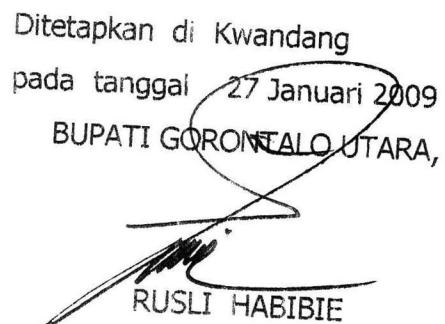 Ditetapkan di Kwandang
pada tanggal 27 Januari 2009
BUPATI GORONTALO UTARA,
RUSLI HABIBIE